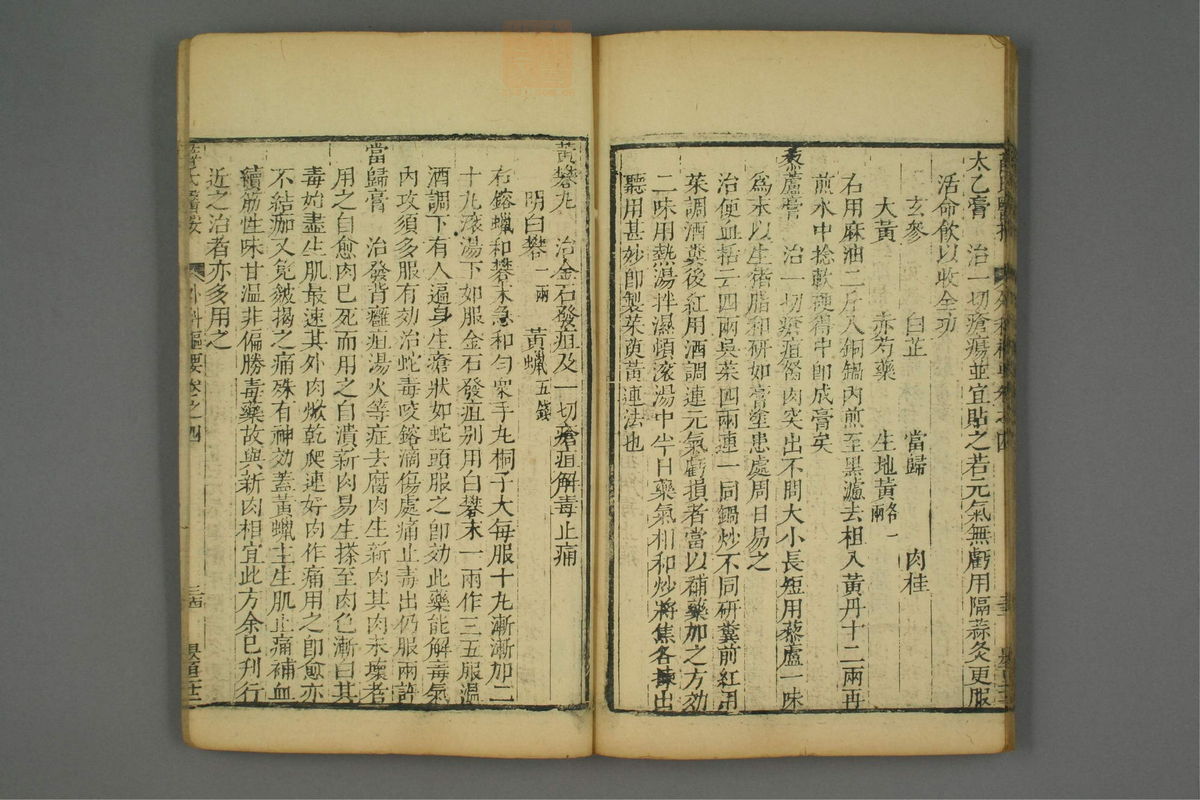 太乙膏　治一切瘡瘍並宜貼之若元氣無虧用隔蒜灸更服
活命飲以收全功
玄參　白芷　當歸　肉桂
大黃　赤芍藥　生地黃各一兩
右用麻油二斤入銅鍋內煎至黑濾去柤入黃丹十二兩再
煎水中捻軟硬得中卽成膏矣
藜蘆膏　治一切瘡疽胬肉突出不問大小長短用藜蘆一味
爲末以生猪脂和研如膏塗患處周日易之
治便血括云四兩吳茱四兩連一同鍋炒不同研糞前紅用
茱調酒糞後紅用酒調連元氣虧損者當以補藥加之方効
二味用熱湯拌濕頓滾湯中半日藥氣相和炒將焦各揀出
聽用甚妙卽製茱萸黃連法也
黃礬丸　治金石發疽及一切瘡疽解毒止痛
明白礬一兩　黃蠟五錢
右鎔蠟和礬末急和勻衆手丸桐子大每服十丸漸漸加二
十丸滾湯下如服金石發疽别用白礬末一兩作三五服溫
酒調下有人遍身生瘡狀如蛇頭服之卽効此藥能解毒氣
內攻須多服有効治蛇毒咬鎔滴傷處痛止毒出仍服兩許
當歸膏　治發背癰疽湯火等症去腐肉生新肉其肉未壞者
用之自愈肉已死而用之自潰新肉易生搽至肉色漸白其
毒始盡生肌最速其外肉焮乾爬連好肉作痛用之卽愈亦
不結痂又免皴揭之痛殊有神効蓋黃蠟主生肌止痛補血
續筋性味甘溫非偏勝毒藥故與新肉相宜此方余已刊行
近之治者亦多用之
醫按　外科樞要卷之四